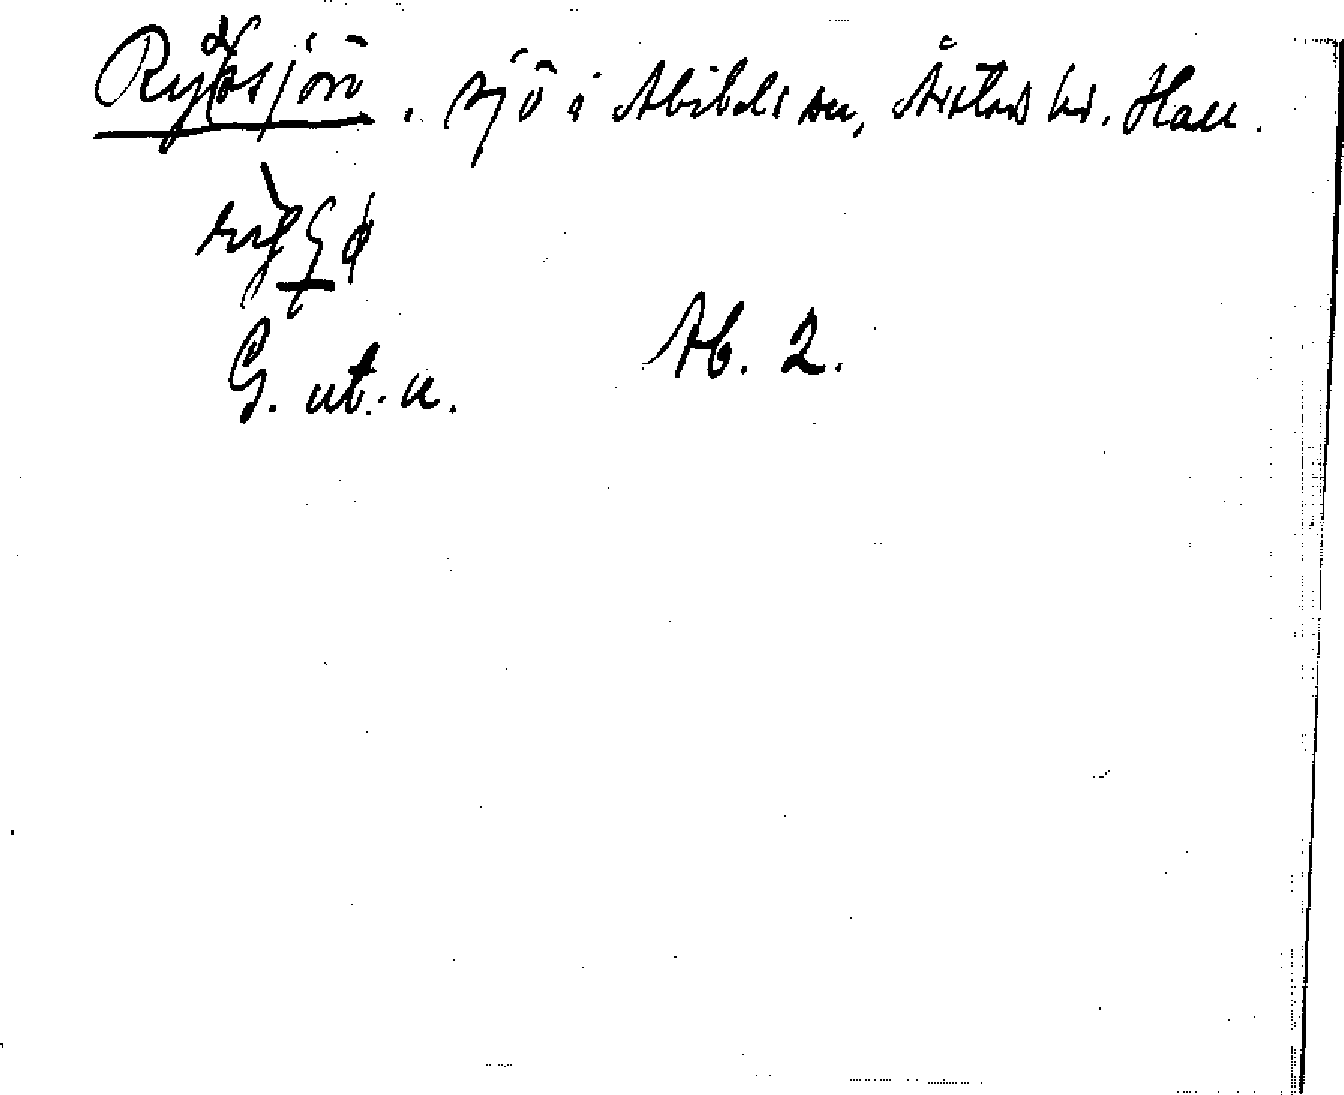 Rydsjön. sjö i Abilds sn, Årstads hd. Hall.
G. ut. u.
Ab. 2.